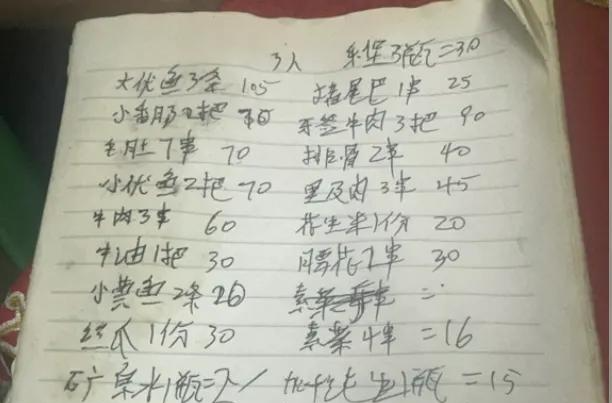 3人 乐堡3瓶=30
大优鱼3条 105 猪尾巴1串 25
小香肠2把 牙签牛肉3把 90
毛肚7串 70 排骨2串 40
小优鱼2把 70 里及肉3串 45
牛肉3串 60 花生米1份 20
牛油1把 30 腰花2串 30
小黄鱼2条 26
丝瓜1份 30 素菜4串 =16
矿泉水1瓶= 1瓶 =15